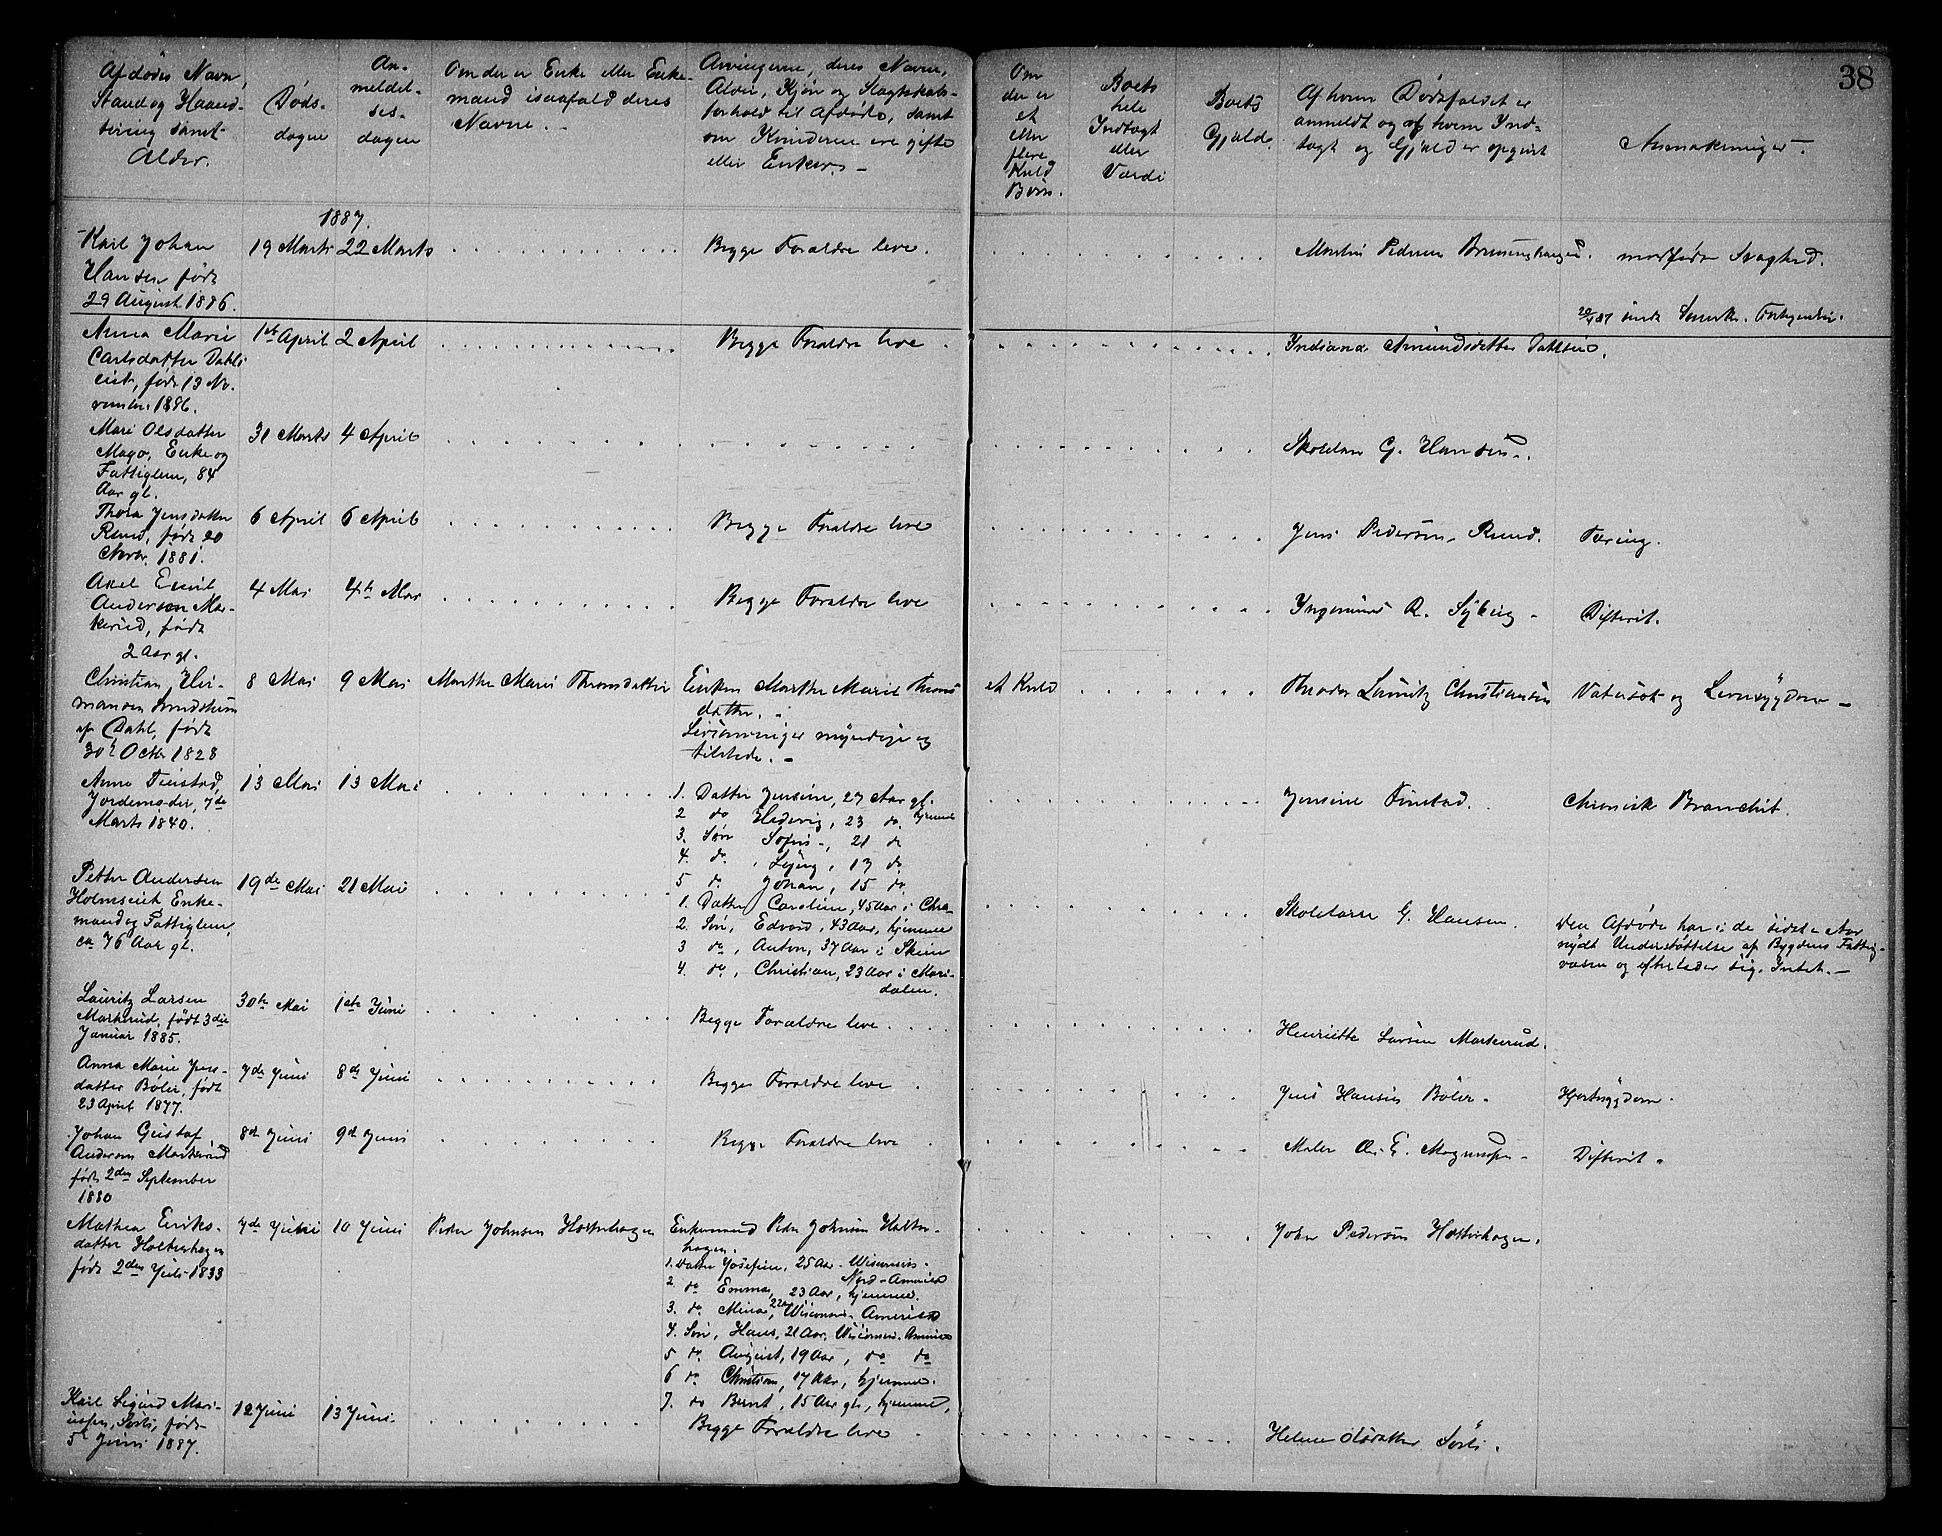 38
Afdødes Navn,
Stand og Haand-
tering samt
Alder.
Døds-
dagen
An-
meldel-
ses-
dagen
Om der er Enke eller Enke-
mand isaafald deres
Navne. -
Arvingerne, deres Navne,
Alder, Kjøn og Slægtskabs-
forhold til Afdøde, samt
om Kvinderne ere gifte
eller Enker. -
Om
der er
et
eller
flere
Kuld
Børn.
Boets
hele
Indtægt
eller
Værdi
Boets
Gjæld.
Af hvem Dødsfaldet er
anmeldt og af hvem Ind-
tægt og Gjæld er opgivet
Anmærkninger.
1887.
Karl Johan
Hansen født
29 August 1886.
19 Marts 22 Marts
Begge Forældre leve.
Martin Pedersen
medfødt Svaghed.
Anna Marie
Carlsdatter Dahls
eiet, født 13 No-
vember 1886.
1ste April 2 April
Begge Forældre leve
Indiana Amundsdatter
Mari Olsdatter
Enke og
Fattiglem, 84
Aar gl.
31 Marts 4 April
Skolelærer G. Hansen.
Thora Jensdatter
Rund, født 20
Novbr. 1881.
6 April 6 April
Begge Forældre leve
Jens Pedersen Rund.
Tæring.
Axel Emil
Andersen Mar-
kerud, født
2 Aar gl.
4 Mai 4de Mai
Begge Forældre leve
Difterit.
Christian Her-
mansen
af Dahl, født
30te Octbr 1828
8 Mai 9 Mai
Marthe Marie Thronsdatter
Enken Marthe Marie Throns
datter.
Livsarvinger myndige og
tilstede. -
et Kuld
Theodor Lauritz Christiansen
Vatersot og Leversygdom -
Anne Finstad,
Jordemoder, 7de
Marts 1840.
13 Mai 13 Mai
1. Datter Jensine, 27 Aar gl.
2 do Hedevig, 23 do. hjemme
3. Søn Sofus, 21 do
4. do. , 17 do
5 do. Johan, 15 do.
Jensine Finstad.
Chronisk Bronchit.
Petter Andersen
Holmseiet Enke-
mand og Fattiglem,
ca 76 Aar gl.
19de Mai 21 Mai
1. Datter Caroline, 45 Aar i Chra
2. Søn, Edvard, 43 Aar, hjemme
3 do, Anton, 37 Aar i Skien
4. do, Christian, 23 Aar i Mari-
dalen.
Skolelærer G. Hansen.
Den Afdøde har i de sidste Aar
nydt Understøttelse af Bygdens Fattig-
væsen og efterlader sig Intet. -
Lauritz Larsen
Markerud, født 3die
Januar 1885.
30te Mai 1ste Juni
Begge Forældre leve.
Henriette Larsen Markerud.
Anna Marie Jens-
datter Bøler, født
23 April 1877.
7de Juni 8de Juni
Begge Forældre leve
Jens Hansen Bøler.
Hjertesygdom.
Johan Gustaf
Andersen Markerud
født 2den September
1880
8de Juni 9de Juni
Begge Forældre leve
Maler
Difterit.
Mathea Eriks-
datter Holterhagen
født 2den Juli 1833
7de Juni 10 Juni
Peder Johnsen Holterhagen
Enkemand Peder Johnsen Holter-
hagen.
1. Datter Josefine, 25 Aar. Wisconsin.
Nord-Amerika
2. do Emma, 23 Aar, hjemme.
3. do Mina, 22 Aar, Wisconsin. Amerika
4. Søn, Hans, 21 Aar, Wisconsin. Amerika
5 do. August, 19 Aar, do do
6 do. Christian, 17 Aar, hjemme.
7. do Bernt, 15 Aar gl, hjemme,
John Pedersen Holterhagen.
Karl Sigurd Mari-
ussen, født
5te Juni 1887.
12 Juni 13 Juni.
Begge Forældre leve
Helene Olsdatter